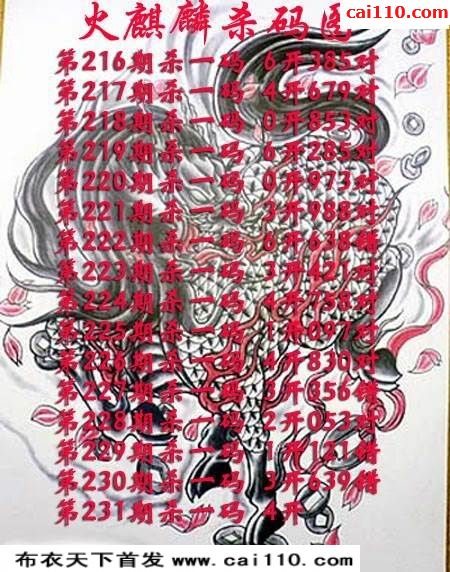 cai110.com
火麒麟杀码区
第216期杀一码 6开385对
第217期杀一码 4开679对
第218期杀一码 0开853对
第219期杀一码 6开285对
第220期杀一码 0开973对
第221期杀一码 3开988对
第222期杀一码 6开638错
第223期杀一码 3开421对
第224期杀一码 4开758对
第225期杀一码 1开097对
第226期杀一码 4开830对
第227期杀一码 3开356错
第228期杀一码 2开053对
第229期杀一码 1开121错
第230期杀一码 3开639错
第231期杀一码 4开
布衣天下首发 www.cai110.com